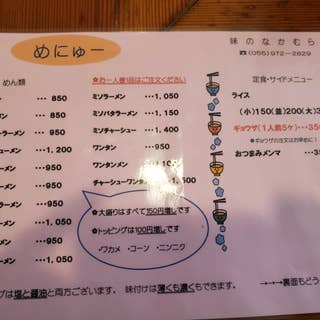 めにゅー
味のなかむら
☎(055)972-2829
めん類
※お一人様1品はご注文ください
定食・サイドメニュー
ン ･･･850
ーメン ･･･950
ーメン ･･･950
･･･950
･･･950
･･･1,050
･･･950
ミソラーメン ･･･1,050
ミソバタラーメン ･･･1,150
ミソチャーシュー ･･･1,400
ワンタン ･･･850
ワンタンメン ･･･1,150
チャーシューワンタンメン ･･･1,550
ライス
(小)150(並)200(大)
ギョウザ(1人前5ケ)･･･350
・ギョウザの注文はお早めに!
おつまみメンマ ･･･
大盛りはすべて150円増しです
トッピングは100円増しです
・ワカメ ・コーン ・ニンニク
プは塩と醤油と両方ございます。 味付けは薄くも濃くもできます。
→→→裏面もどう